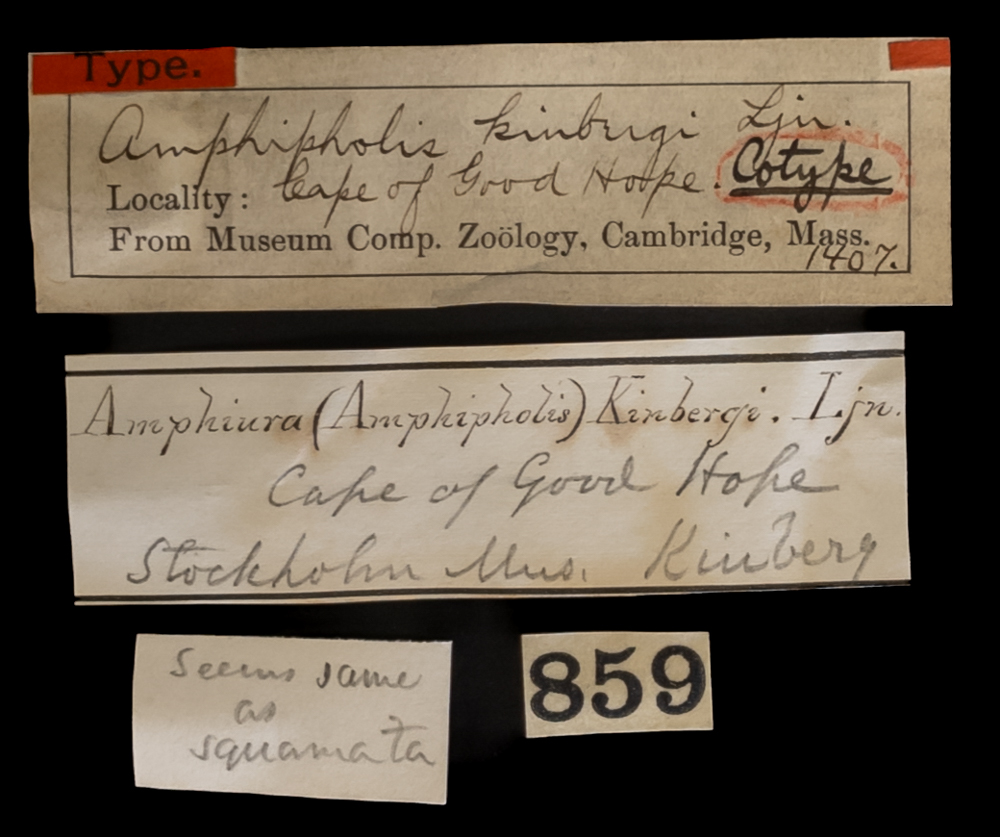 Type.
Amphipholis kinbergi Ljn.
Locality: Cape of Good Hope. Cotype
From Museum Comp. Zoölogy, Cambridge, Mass.
1407.
Amphiura (Amphipholis) Kinbergi. Ljn.
Cape of Good Hope
Stockholm Mus. Kinberg
Seems same
as
squamata
859